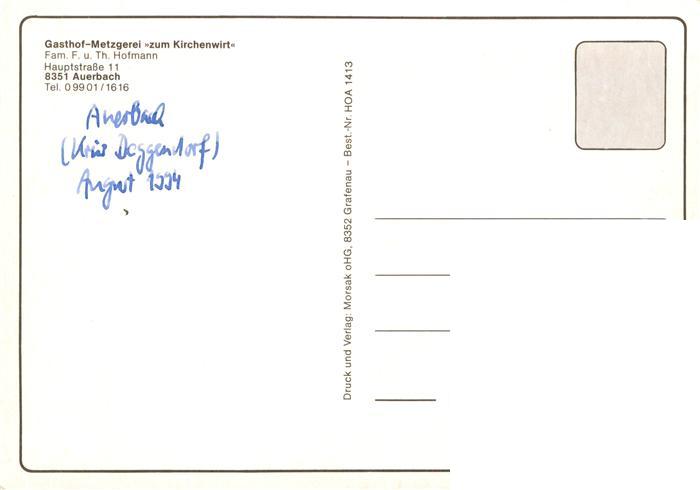 Gasthof-Metzgerei »zum Kirchenwirt«
Fam. F. u. Th. Hofmann
Hauptstraße 11
8351 Auerbach
Tel. 09901/1616
Auerbach
(Kreis Deggendorf)
August 1994
Druck und Verlag: Morsak oHG, 8352 Grafenau – Best.-Nr. HOA 1413